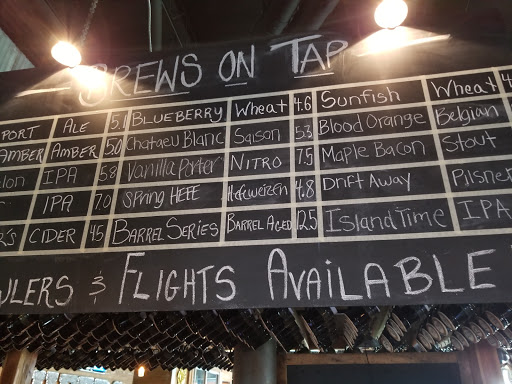 BREWS ON TAP
PORT ALE 5.1 BLUEBERRY Wheat 4.6 Sunfish Wheat 4
AMBER AMBER 5.0 Chataeu Blanc Saison 5.3 Blood Orange Belgian
IPA 5.8 Vanilla Porter NITRO 7.5 Maple Bacon Stout
IPA 7.0 Spring HEFE Hefeweizen 4.8 Drift Away Pilsner
CIDER 4.5 BARREL SERIES BARREL AGED 12.5 Island Time IPA
WLERS & FLIGHTS AVAILABLE